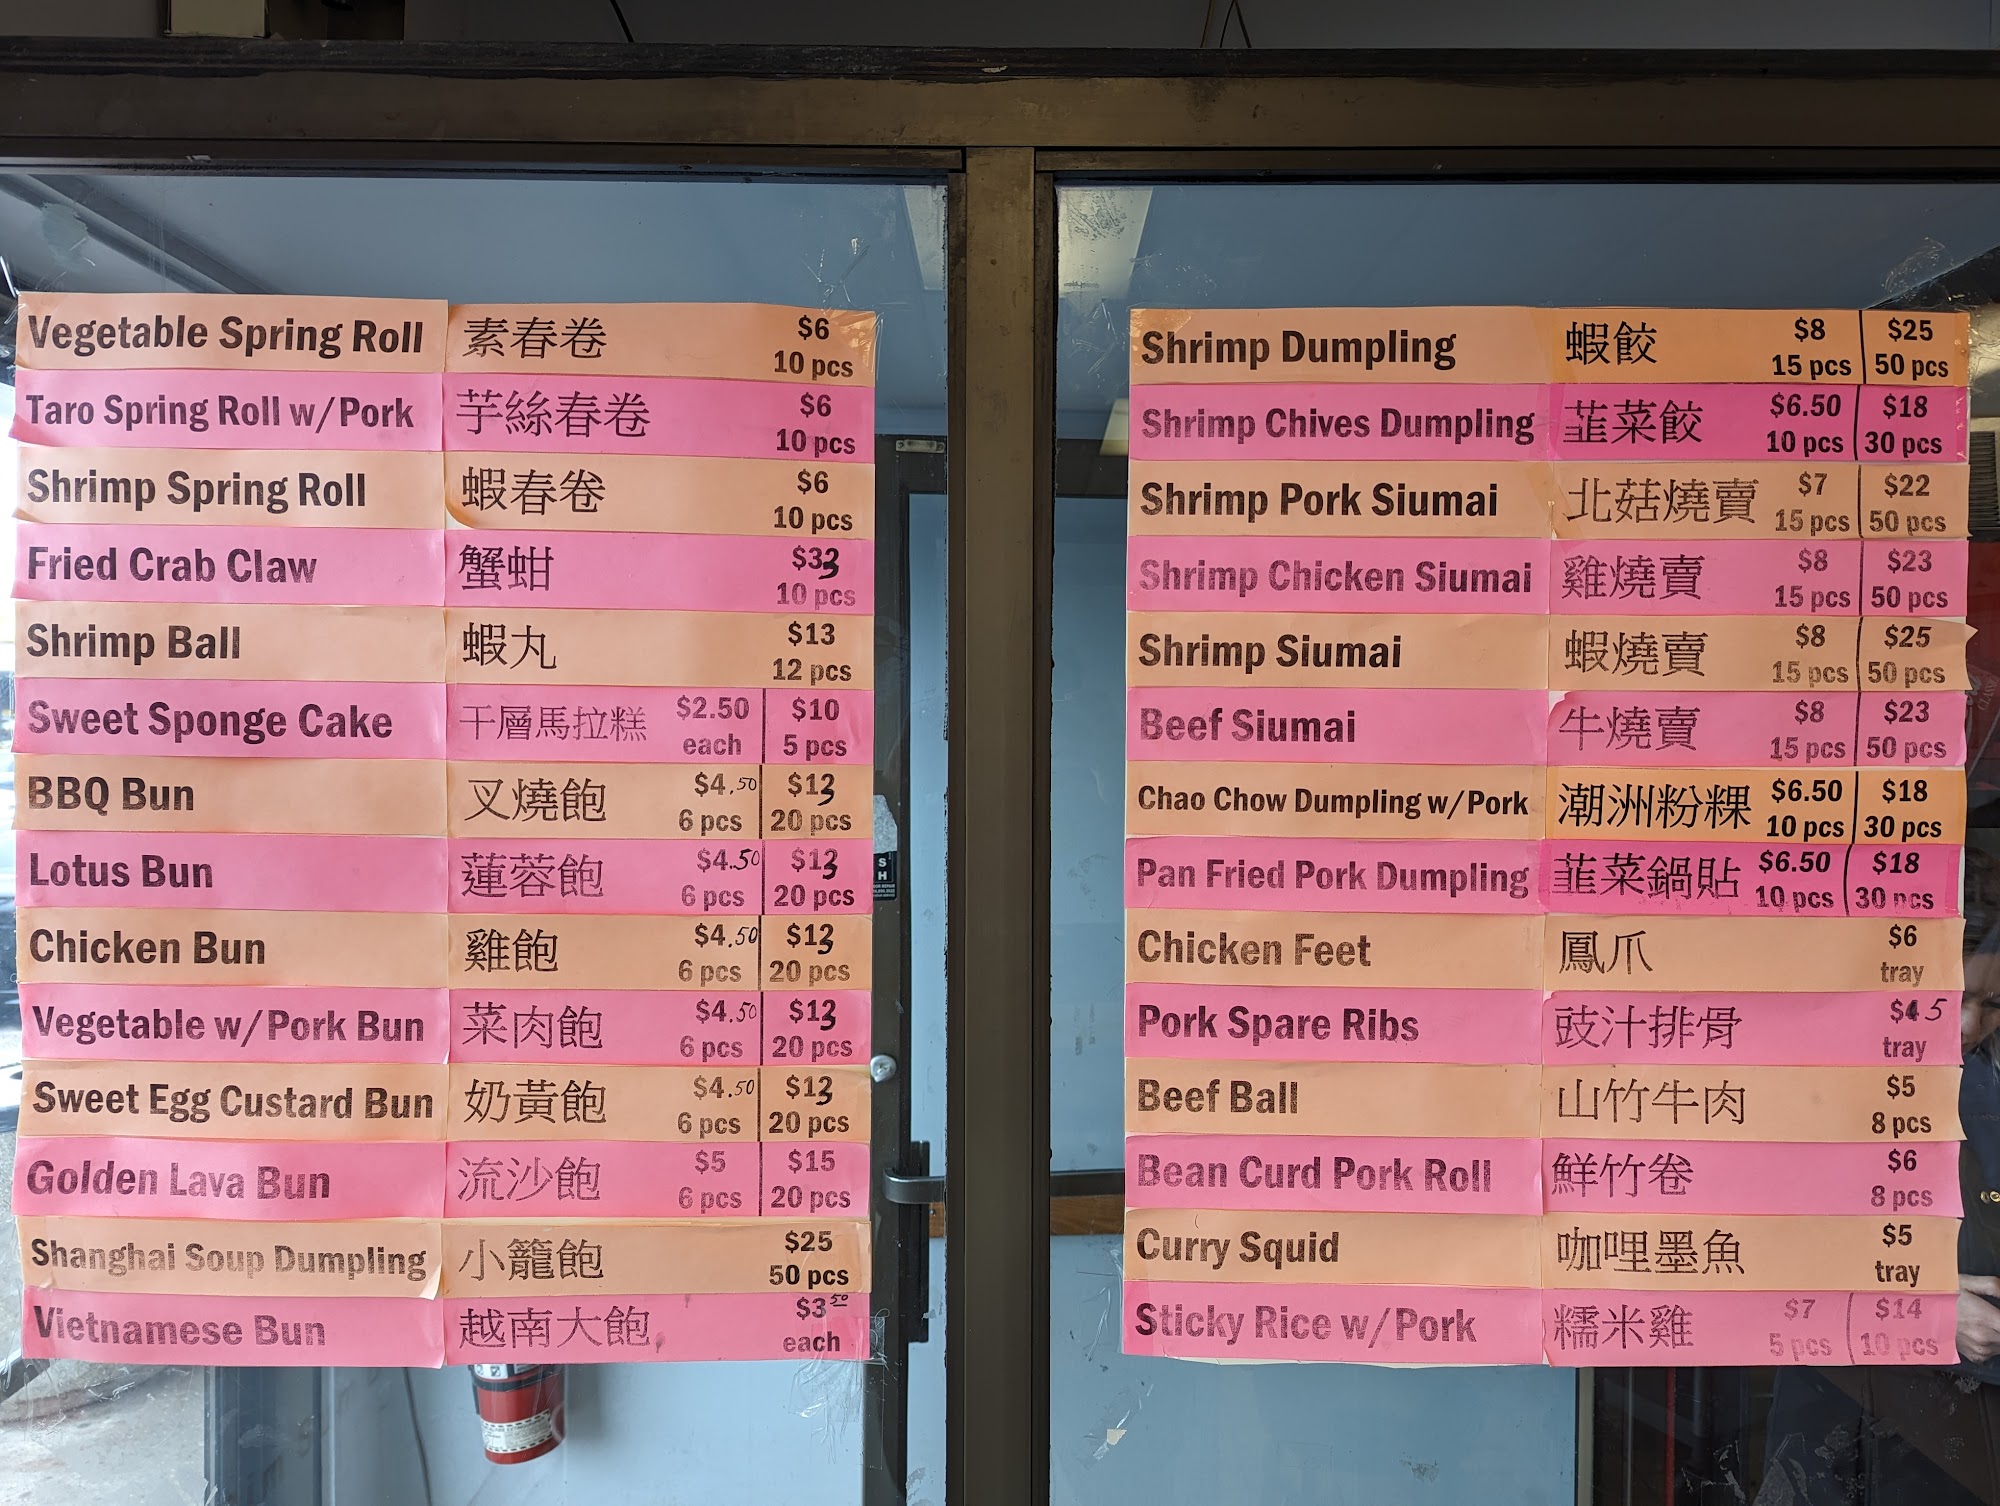 Vegetable Spring Roll 素春卷 $6
10 pcs
Taro Spring Roll w/Pork 芋絲春卷 $6
10 pcs
Shrimp Spring Roll 蝦春卷 $6
10 pcs
Fried Crab Claw 蟹蚶 $33
10 pcs
Shrimp Ball 蝦丸 $13
12 pcs
Sweet Sponge Cake 千層馬拉糕 $2.50 $10
each 5 pcs
BBQ Bun 叉燒飽 $4.50 $13
6 pcs 20 pcs
Lotus Bun 蓮蓉飽 $4.50 $13
6 pcs 20 pcs
Chicken Bun 雞飽 $4.50 $13
6 pcs 20 pcs
Vegetable w/Pork Bun 菜肉飽 $4.50 $13
6 pcs 20 pcs
Sweet Egg Custard Bun 奶黃飽 $4.50 $13
6 pcs 20 pcs
Golden Lava Bun 流沙飽 $5 $15
6 pcs 20 pcs
Shanghai Soup Dumpling 小籠飽 $25
50 pcs
Vietnamese Bun 越南大飽 $3.50
each
Shrimp Dumpling 蝦餃 $8 $25
15 pcs 50 pcs
Shrimp Chives Dumpling 韮菜餃 $6.50 $18
10 pcs 30 pcs
Shrimp Pork Siumai 北菇燒賣 $7 $22
15 pcs 50 pcs
Shrimp Chicken Siumai 雞燒賣 $8 $23
15 pcs 50 pcs
Shrimp Siumai 蝦燒賣 $8 $25
15 pcs 50 pcs
Beef Siumai 牛燒賣 $8 $23
15 pcs 50 pcs
Chao Chow Dumpling w/Pork 潮洲粉粿 $6.50 $18
10 pcs 30 pcs
Pan Fried Pork Dumpling 韮菜鍋貼 $6.50 $18
10 pcs 30 pcs
Chicken Feet 鳳爪 $6
tray
Pork Spare Ribs 豉汁排骨 $4 5
tray
Beef Ball 山竹牛肉 $5
8 pcs
Bean Curd Pork Roll 鮮竹卷 $6
8 pcs
Curry Squid 咖哩墨魚 $5
tray
Sticky Rice w/Pork 糯米雞 $7 $14
5 pcs 10 pcs
S
H